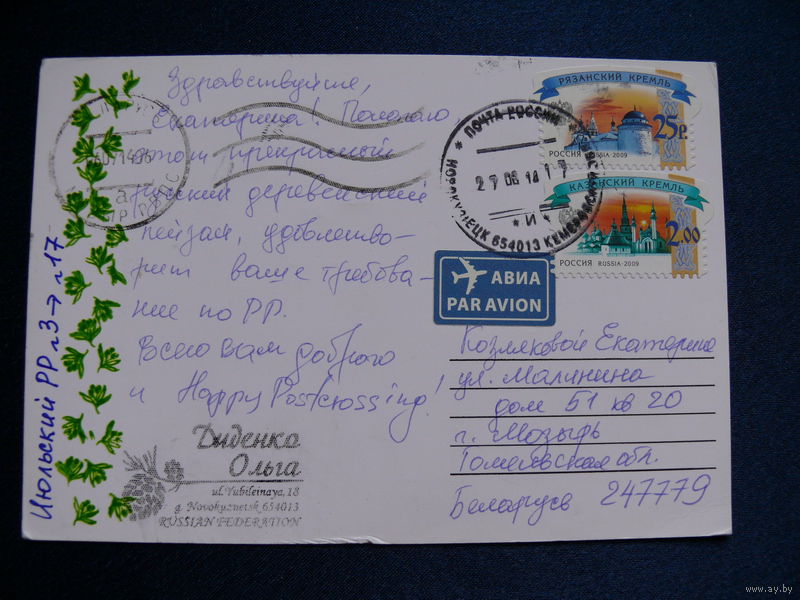 Здравствуйте,
Екатерина! Полагаю
этот прекрасный
деревенский
пейзаж, удовлетво-
рит ваше требова-
ние по РР.
Всего вам доброго
и Happy Postcrossing!
Июльский РР л3→л17
Диденко
Ольга
ul. Yubileinaya, 18
g. Novokuznetsk, 654013
RUSSIAN FEDERATION
РЯЗАНСКИЙ КРЕМЛЬ
25р.
РОССИЯ RUSSIA·2009
КАЗАНСКИЙ КРЕМЛЬ
2.00
РОССИЯ RUSSIA·2009
* ПОЧТА РОССИИ *
27 06 14 17
* И *
НОВОКУЗНЕЦК 654013 КЕМЕРОВСКАЯ
АВИА
PAR AVION
Козляковой Екатерина
ул. Малинина
дом 51 кв 20
г. Мозырь
Гомельская обл.
Беларусь 247779
www.ay.by